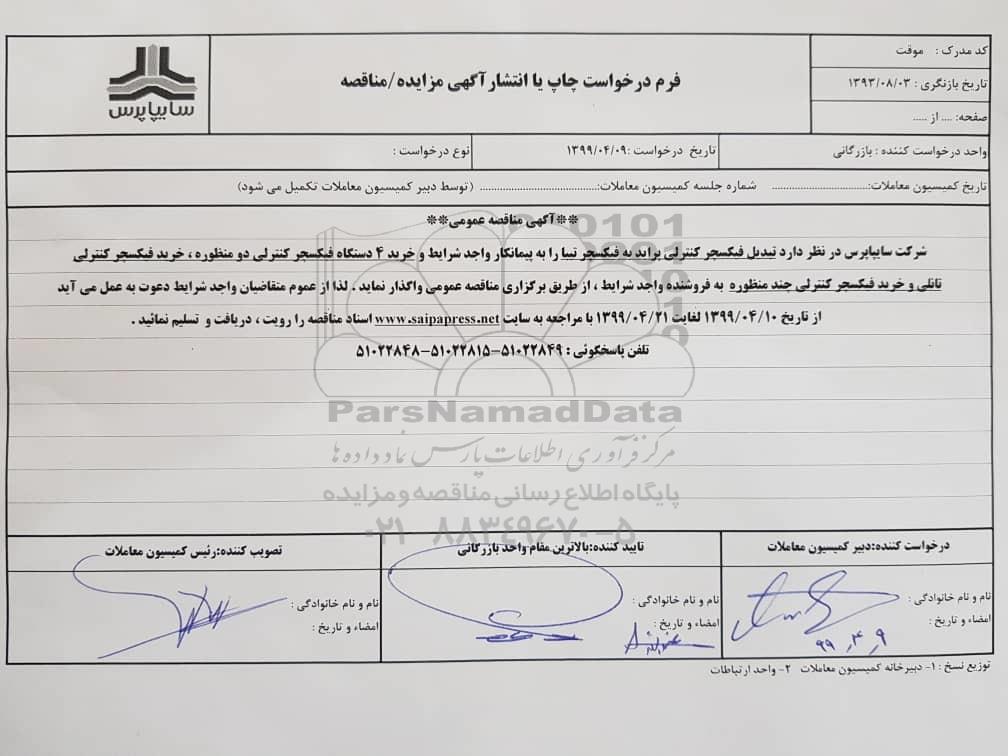 سایپاپرس
فرم درخواست چاپ یا انتشار آگهی مزایده/مناقصه
کد مدرک : موقت
تاریخ بازنگری : ۱۳۹۳/۰۸/۰۳
صفحه: .... از .....
واحد درخواست کننده : بازرگانی
تاریخ درخواست :۱۳۹۹/۰۴/۰۹
نوع درخواست :
تاریخ کمیسیون معاملات:............................... شماره جلسه کمیسیون معاملات:...................................... (توسط دبیر کمیسیون معاملات تکمیل می شود)
**آگهی مناقصه عمومی**
شرکت سایپاپرس در نظر دارد تبدیل فیکسچر کنترلی پراید به فیکسچر تیبا را به پیمانکار واجد شرایط و خرید ۴ دستگاه فیکسچر کنترلی دو منظوره ، خرید فیکسچر کنترلی
تانلی و خرید فیکسچر کنترلی چند منظوره به فروشنده واجد شرایط ، از طریق برگزاری مناقصه عمومی واگذار نماید . لذا از عموم متقاضیان واجد شرایط دعوت به عمل می آید
از تاریخ ۱۳۹۹/۰۴/۱۰ لغایت ۱۳۹۹/۰۴/۲۱ با مراجعه به سایت www.saipapress.net اسناد مناقصه را رویت ، دریافت و تسلیم نمائید .
تلفن پاسخگوئی : ۵۱۰۲۲۸۴۹-۵۱۰۲۲۸۱۵-۵۱۰۲۲۸۴۸
ParsNamadData
مرکز فرآوری اطلاعات پارس نماد داده ها
پایگاه اطلاع رسانی مناقصه و مزایده
۰۲۱ ۸۸۳۴۹۶۷۰-۵
درخواست کننده:دبیر کمیسیون معاملات
تایید کننده:بالاترین مقام واحد بازرگانی
تصویب کننده:رئیس کمیسیون معاملات
نام و نام خانوادگی :
امضاء و تاریخ :
۹۹,۴,۹
نام و نام خانوادگی :
امضاء و تاریخ :
نام و نام خانوادگی :
امضاء و تاریخ :
توزیع نسخ : ۱- دبیرخانه کمیسیون معاملات ۲- واحد ارتباطات